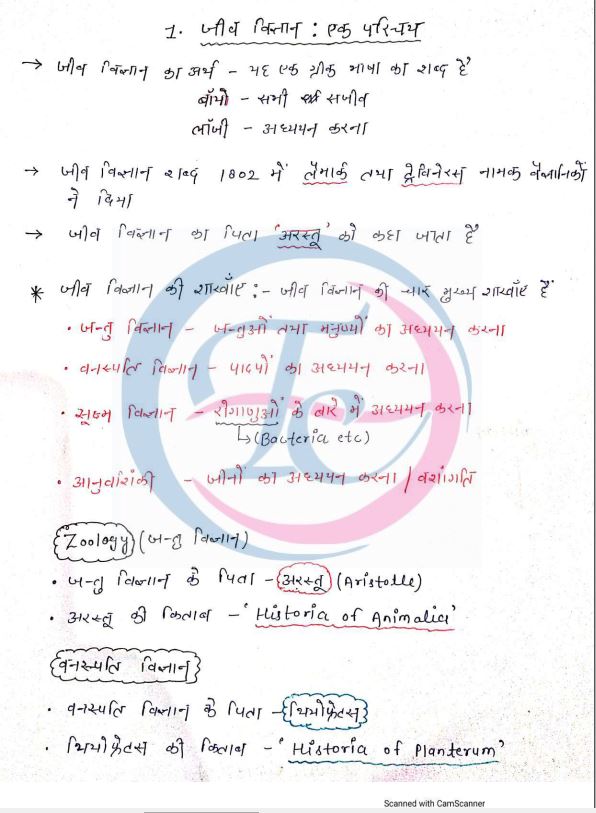 1. जीव विज्ञान : एक परिचय
→ जीव विज्ञान का अर्थ - यह एक ग्रीक भाषा का शब्द है
बॉयो - सभी सजीव
लॉजी - अध्ययन करना
→ जीव विज्ञान शब्द 1802 में लैमार्क तथा ट्रेविनेरस नामक वैज्ञानिकों
ने दिया
→ जीव विज्ञान का पिता 'अरस्तू' को कहा जाता है
* जीव विज्ञान की शाखाँए :- जीव विज्ञान की चार मुख्य शाखाँए हैं
• जन्तु विज्ञान - जन्तुओं तथा मनुष्यों का अध्ययन करना
• वनस्पति विज्ञान - पादपों का अध्ययन करना
• सूक्ष्म विज्ञान - रोगाणुओं के बारे में अध्ययन करना
↳ (Bacteria etc)
• आनुवांशिकी - जीनों का अध्ययन करना / वशांगति
Zoology (जन्तु विज्ञान)
• जन्तु विज्ञान के पिता - अरस्तू (Aristotle)
• अरस्तू की किताब - 'Historia of Animalia'
वनस्पति विज्ञान
• वनस्पति विज्ञान के पिता - थियोफ्रेटस
• थियोफ्रेटस की किताब - 'Historia of Planterum'
Scanned with CamScanner